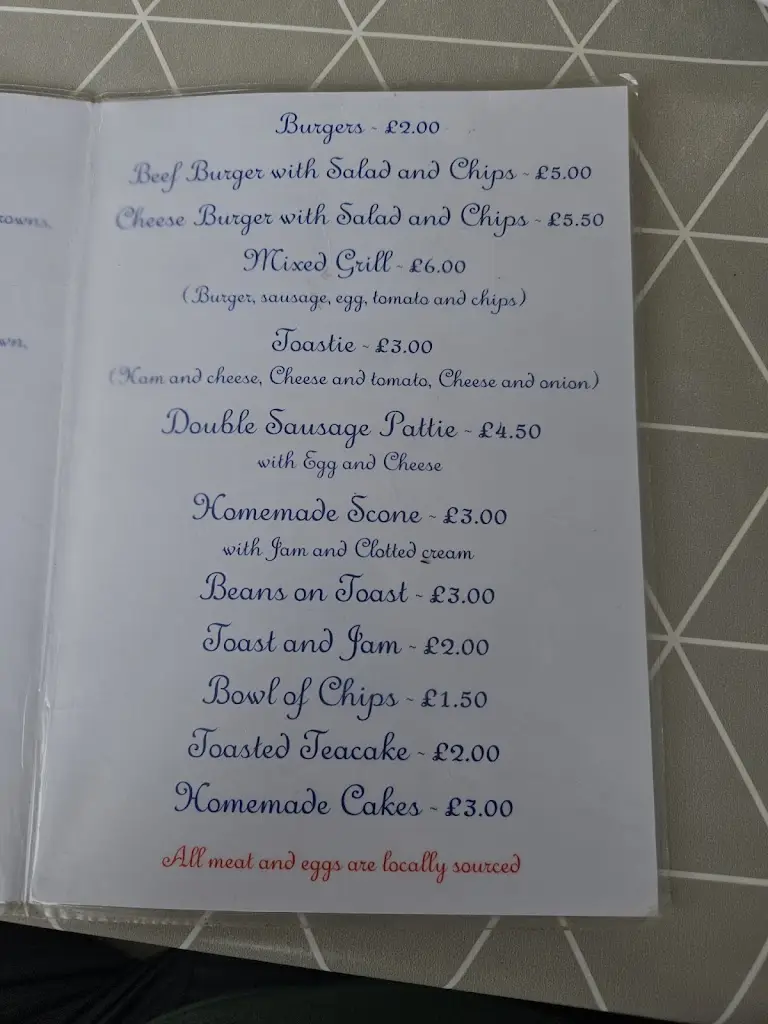 Burgers - £2.00
Beef Burger with Salad and Chips - £5.00
Cheese Burger with Salad and Chips - £5.50
Mixed Grill - £6.00
(Burger, sausage, egg, tomato and chips)
Toastie - £3.00
(Ham and cheese, Cheese and tomato, Cheese and onion)
Double Sausage Pattie - £4.50
with Egg and Cheese
Homemade Scone - £3.00
with Jam and Clotted cream
Beans on Toast - £3.00
Toast and Jam - £2.00
Bowl of Chips - £1.50
Toasted Teacake - £2.00
Homemade Cakes - £3.00
All meat and eggs are locally sourced